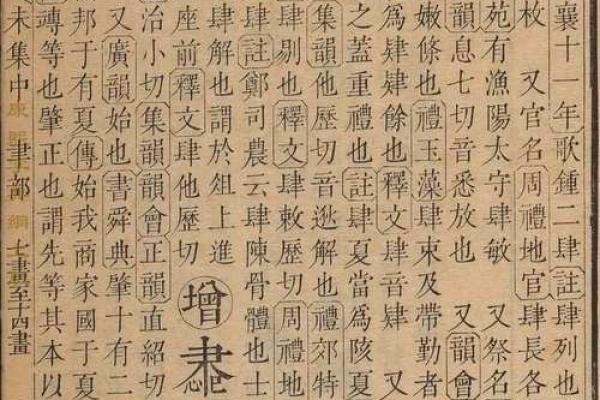 襄十一年歌鍾二肆註肆列也
枚 又官名周禮地官肆長各
苑有漁陽太守肆敏 又祭名
韻息七切音悉放也 又韻會
嫩條也禮玉藻肆束及帶勤者
爲肆肆餘也釋文肆音肆 又
之蓋重禮也註肆夏當爲陔夏
集韻他歷切音逖解也禮郊特
肆剔也釋文肆敕歷切周禮地
肆註鄭司農云肆陳骨體也士
肆解也謂於俎上進
座前釋文肆他歷切
增
治小切集韻韻會正韻直紹切
又廣韻始也書舜典肇十有二
邦于有夏傳始我商家國于夏
竱等也肇正也謂先等其本以
未集中 聿部 七畫至十四畫